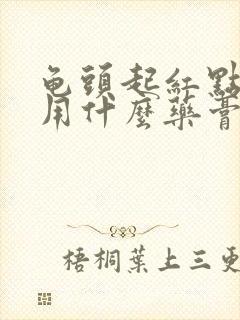 龟頭起紅點
用什麼藥膏
梧桐葉上三更